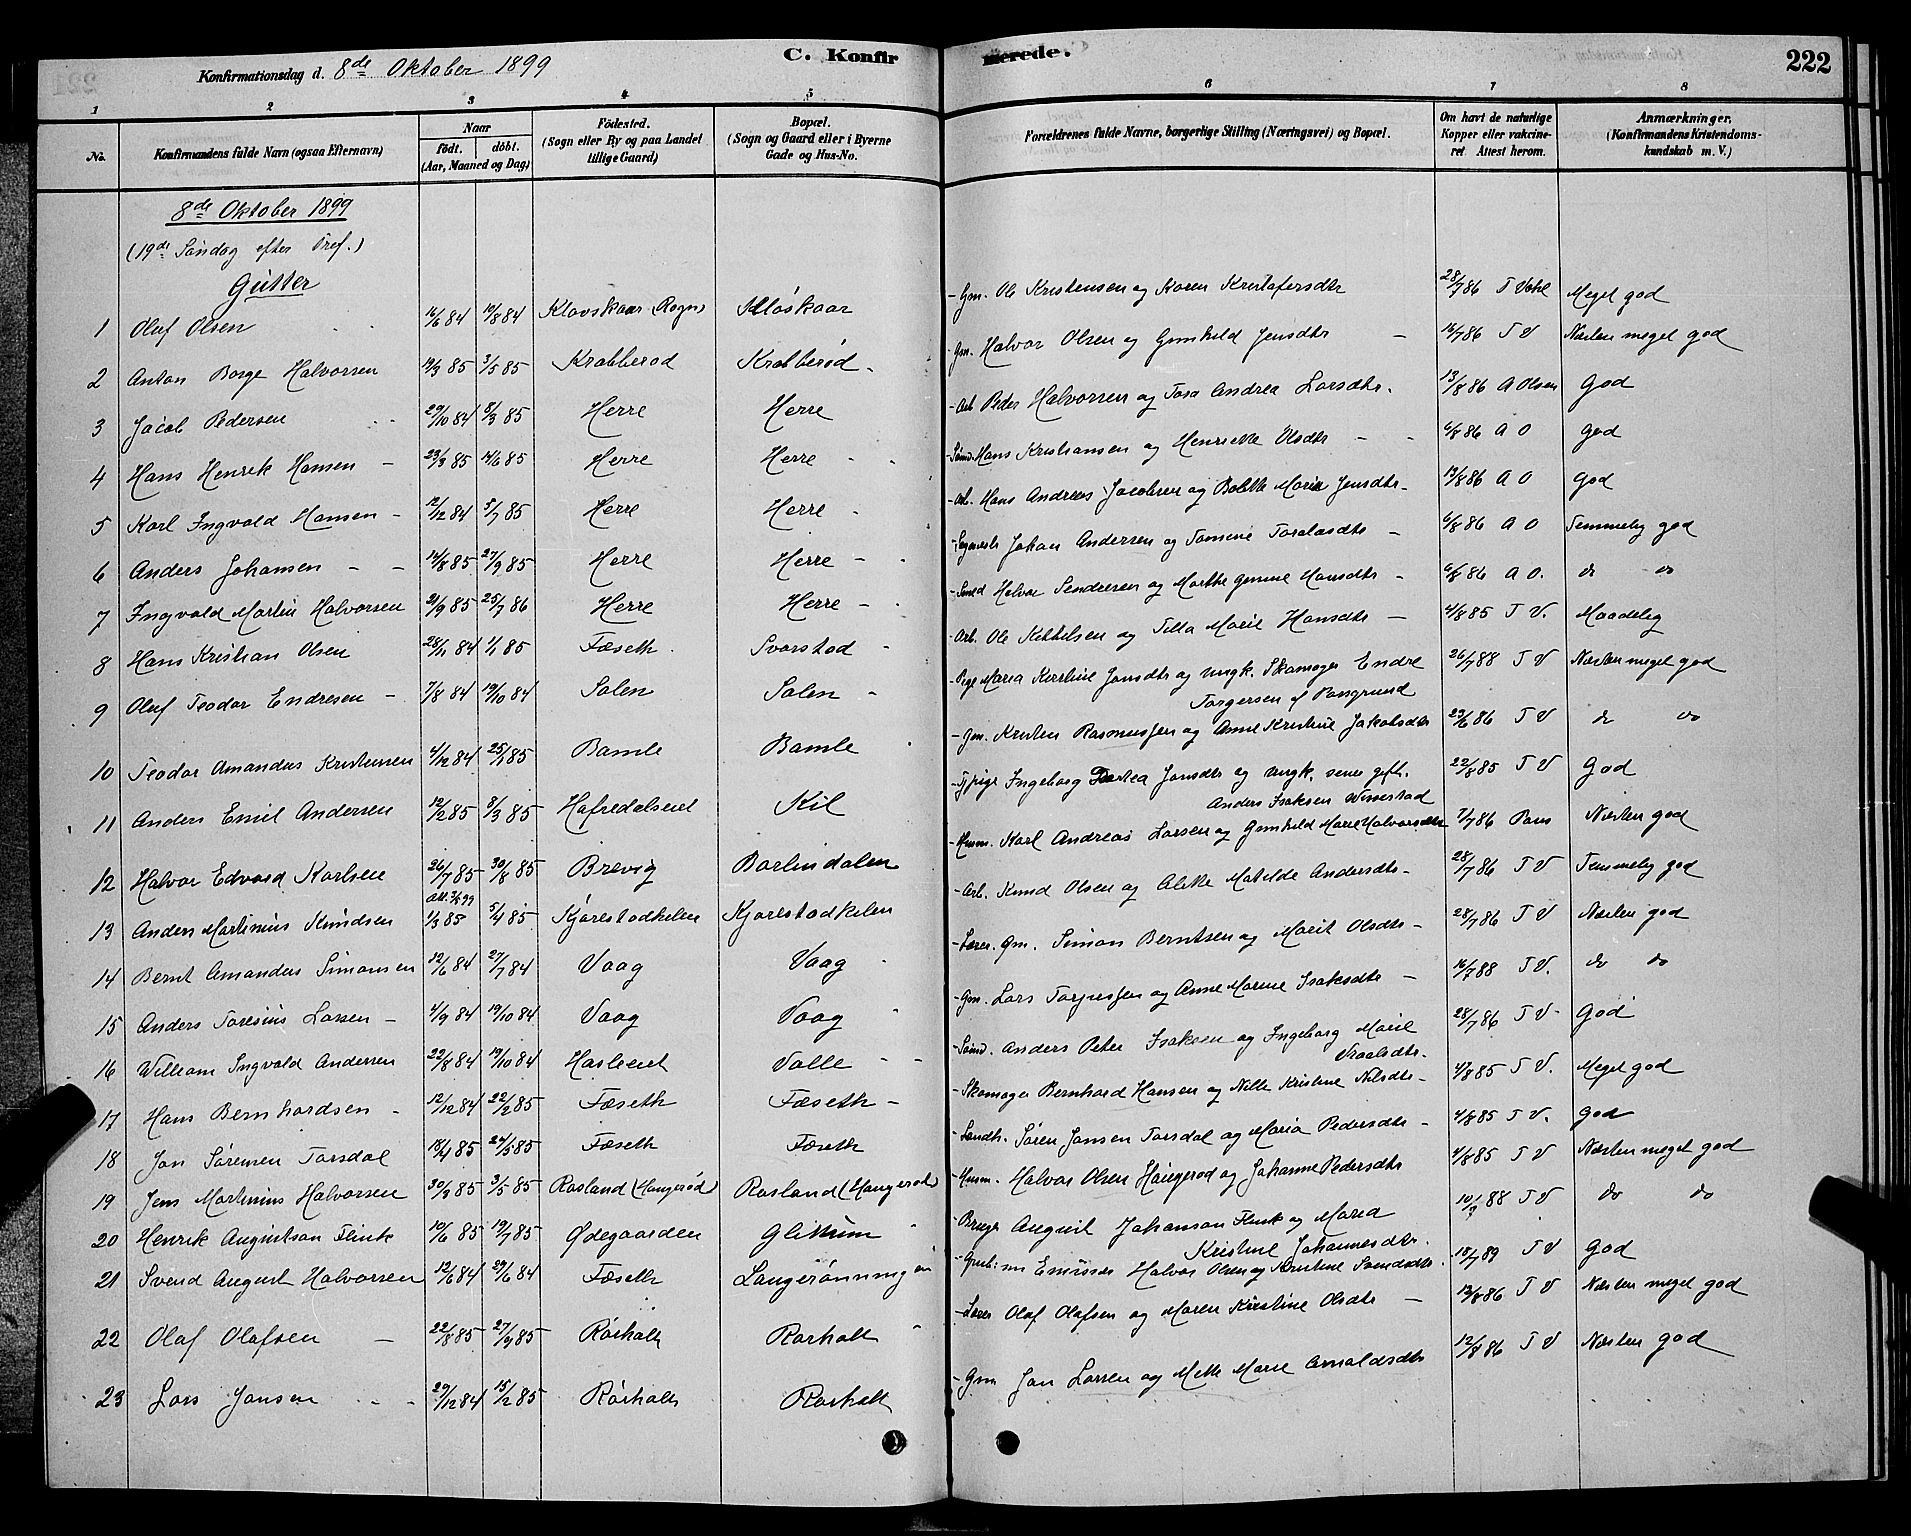 C. Konfirmerede.
222
Konfirmationsdag d. 8de Oktober 1899
1 2 3 4 5 6 7 8
No.
Konfirmandens fulde Navn (ogsaa Efternavn)
Naar født. døbt. (Aar, Maaned og Dag)
Födested. (Sogn eller By og paa Landet tillige Gaard)
Bopæl. (Sogn og Gaard eller i Byerne Gade og Hus-No.
Forældrenes fulde Navne, borgerlige Stilling (Næringsvei) og Bopæl.
Om havt de naturlige Kopper eller vakcineret. Attest herom.
Anmærkninger, (Konfirmandens Kristendomskundskab m. V.)
8de Oktober 1899
(19de Søndag efter Tref.)
Gutter
1 Olaf Olsen 16/6 84 10/8 84 Klovskaar (Rogn) Kloskaar - Gm. Ole Kristensen og Karen Kristafersdtr 28/7 86 T Vohl Meget god
2 Anton Borge Halvorsen 19/3 85 3/5 85 Krabberød Krabberød - Gm. Halvor Olsen og Gunhild Jensdtr 16/7 86 T V Næsten meget god
3 Jacob Pedersen 29/10 84 8/3 85 Herre Herre - Arb Peder Halvorsen og Tora Andrea Larsdtr. 13/8 86 A Olsen God
4 Hans Henrik Hansen 23/3 85 14/6 85 Herre Herre - Sømd. Hans Kristiansen og Henriette Olsdtr 6/8 86 A O God
5 Karl Ingvald Hansen 12/12 84 5/7 85 Herre Herre - Arb. Hans Andreas Jacobsen og Bolette Marie Jensdtr 13/8 86 A O God
6 Anders Johansen 14/8 85 27/9 85 Herre Herre - Johan Andersen og Tomine 6/8 86 A O Temmelig god
7 Ingvald Martin Halvorsen 21/9 85 25/7 86 Herre Herre - Smed Halvor og Marthe Hansdtr 6/8 86 A O. do do
8 Hans Kristian Olsen 28/11 84 1/1 85 Fæseth Svarstad - Arb. Ole Kittelsen og Tilla Marie Hansdtr 4/8 85 T V. Maadelig
9 Olaf Teodor Endresen 7/8 84 19/10 84 Salen Salen - Pige Maria Kirstine Jonsdtr og ungk. Skomager Endre Torgersen af Porsgrund 26/7 88 T V Næsten meget god
10 Teodor Amandus Kristensen 4/12 84 25/1 85 Bamle Bamle - Gm. Kristen Rasmussen og Anne Kristine Jakobsdtr 23/6 86 T V do do
11 Anders Emil Andersen 12/2 85 8/3 85 Hafredalseiet Kil - Tjpige Ingeborg Jonsdtr og ungk. senere gift. Anders Isaksen Vissestad 22/8 85 T V God
12 Halvor Edvard Karlsen 26/7 85 30/8 85 Brevig Borlindalen - Husm. Karl Andreas Larsen og Gunhild Marie Halvorsdtr 7/7 86 Næsten god
13 Anders Martinius Knudsen 1/3 85 5/4 85 Kjørestadkilen Kjørestadkilen - Arb. Knud Olsen og Alette Matilde Andersdtr 28/7 86 T V Temmelig god
14 Bernt Amandus Simonsen 12/6 84 27/7 84 Vaag Vaag - Gm. Simon Berntsen og Marit Olsdtr 28/7 86 T V Næsten god
15 Anders Toresius Larsen 4/9 84 19/10 84 Vaag Vaag - Gm. Lars og Anne Marine Isaksdtr 16/7 88 T V. do do
16 William Ingvald Andersen 22/8 84 19/10 84 Hasleeiet Valle - Sømd. Anders Peter Isaksen og Ingeborg Marie 28/7 86 T V God
17 Hans Bernhardsen 12/12 84 22/2 85 Fæseth Fæseth - Skomager Bernhard Hansen og Nille Kristine Nilsdtr 4/8 85 T V. Meget god
18 Jan Sørensen Torsdal 18/4 85 24/5 85 Fæseth Fæseth - Søren Jansen Torsdal og Maria Pedersdtr 4/8 85 T V. God
19 Jens Martinius Halvorsen 30/3 85 3/5 85 Rosland (Haugerød) Rosland (Haugerød) - Husm. Halvor Olsen Haugerød og Johanne Pedersdtr 4/8 85 T V Næsten meget god
20 Henrik Augustson Flink 10/6 85 19/7 85 Ødegaarden Glittum - August Johanson Flink og Maria Kristine Johannesdtr. 88 T V do do
21 Svend August Halvorsen 12/6 84 29/6 84 Fæseth Langerønningen - Halvor Olsen og Kirstine Svendsdtr. 18/7 89 T V God
22 Olaf Olafsen 22/8 85 27/9 85 Rørholt Rørholt - Olaf Olafsen og Maren Kirstine Olsdtr 12/8 86 T V Næsten meget god
23 Lars Jansen 29/12 84 15/2 85 Rørholt Rørholt - Gm Jan Larsen og Mette Marie Arnoldsdtr 12/8 86 T V Næsten god